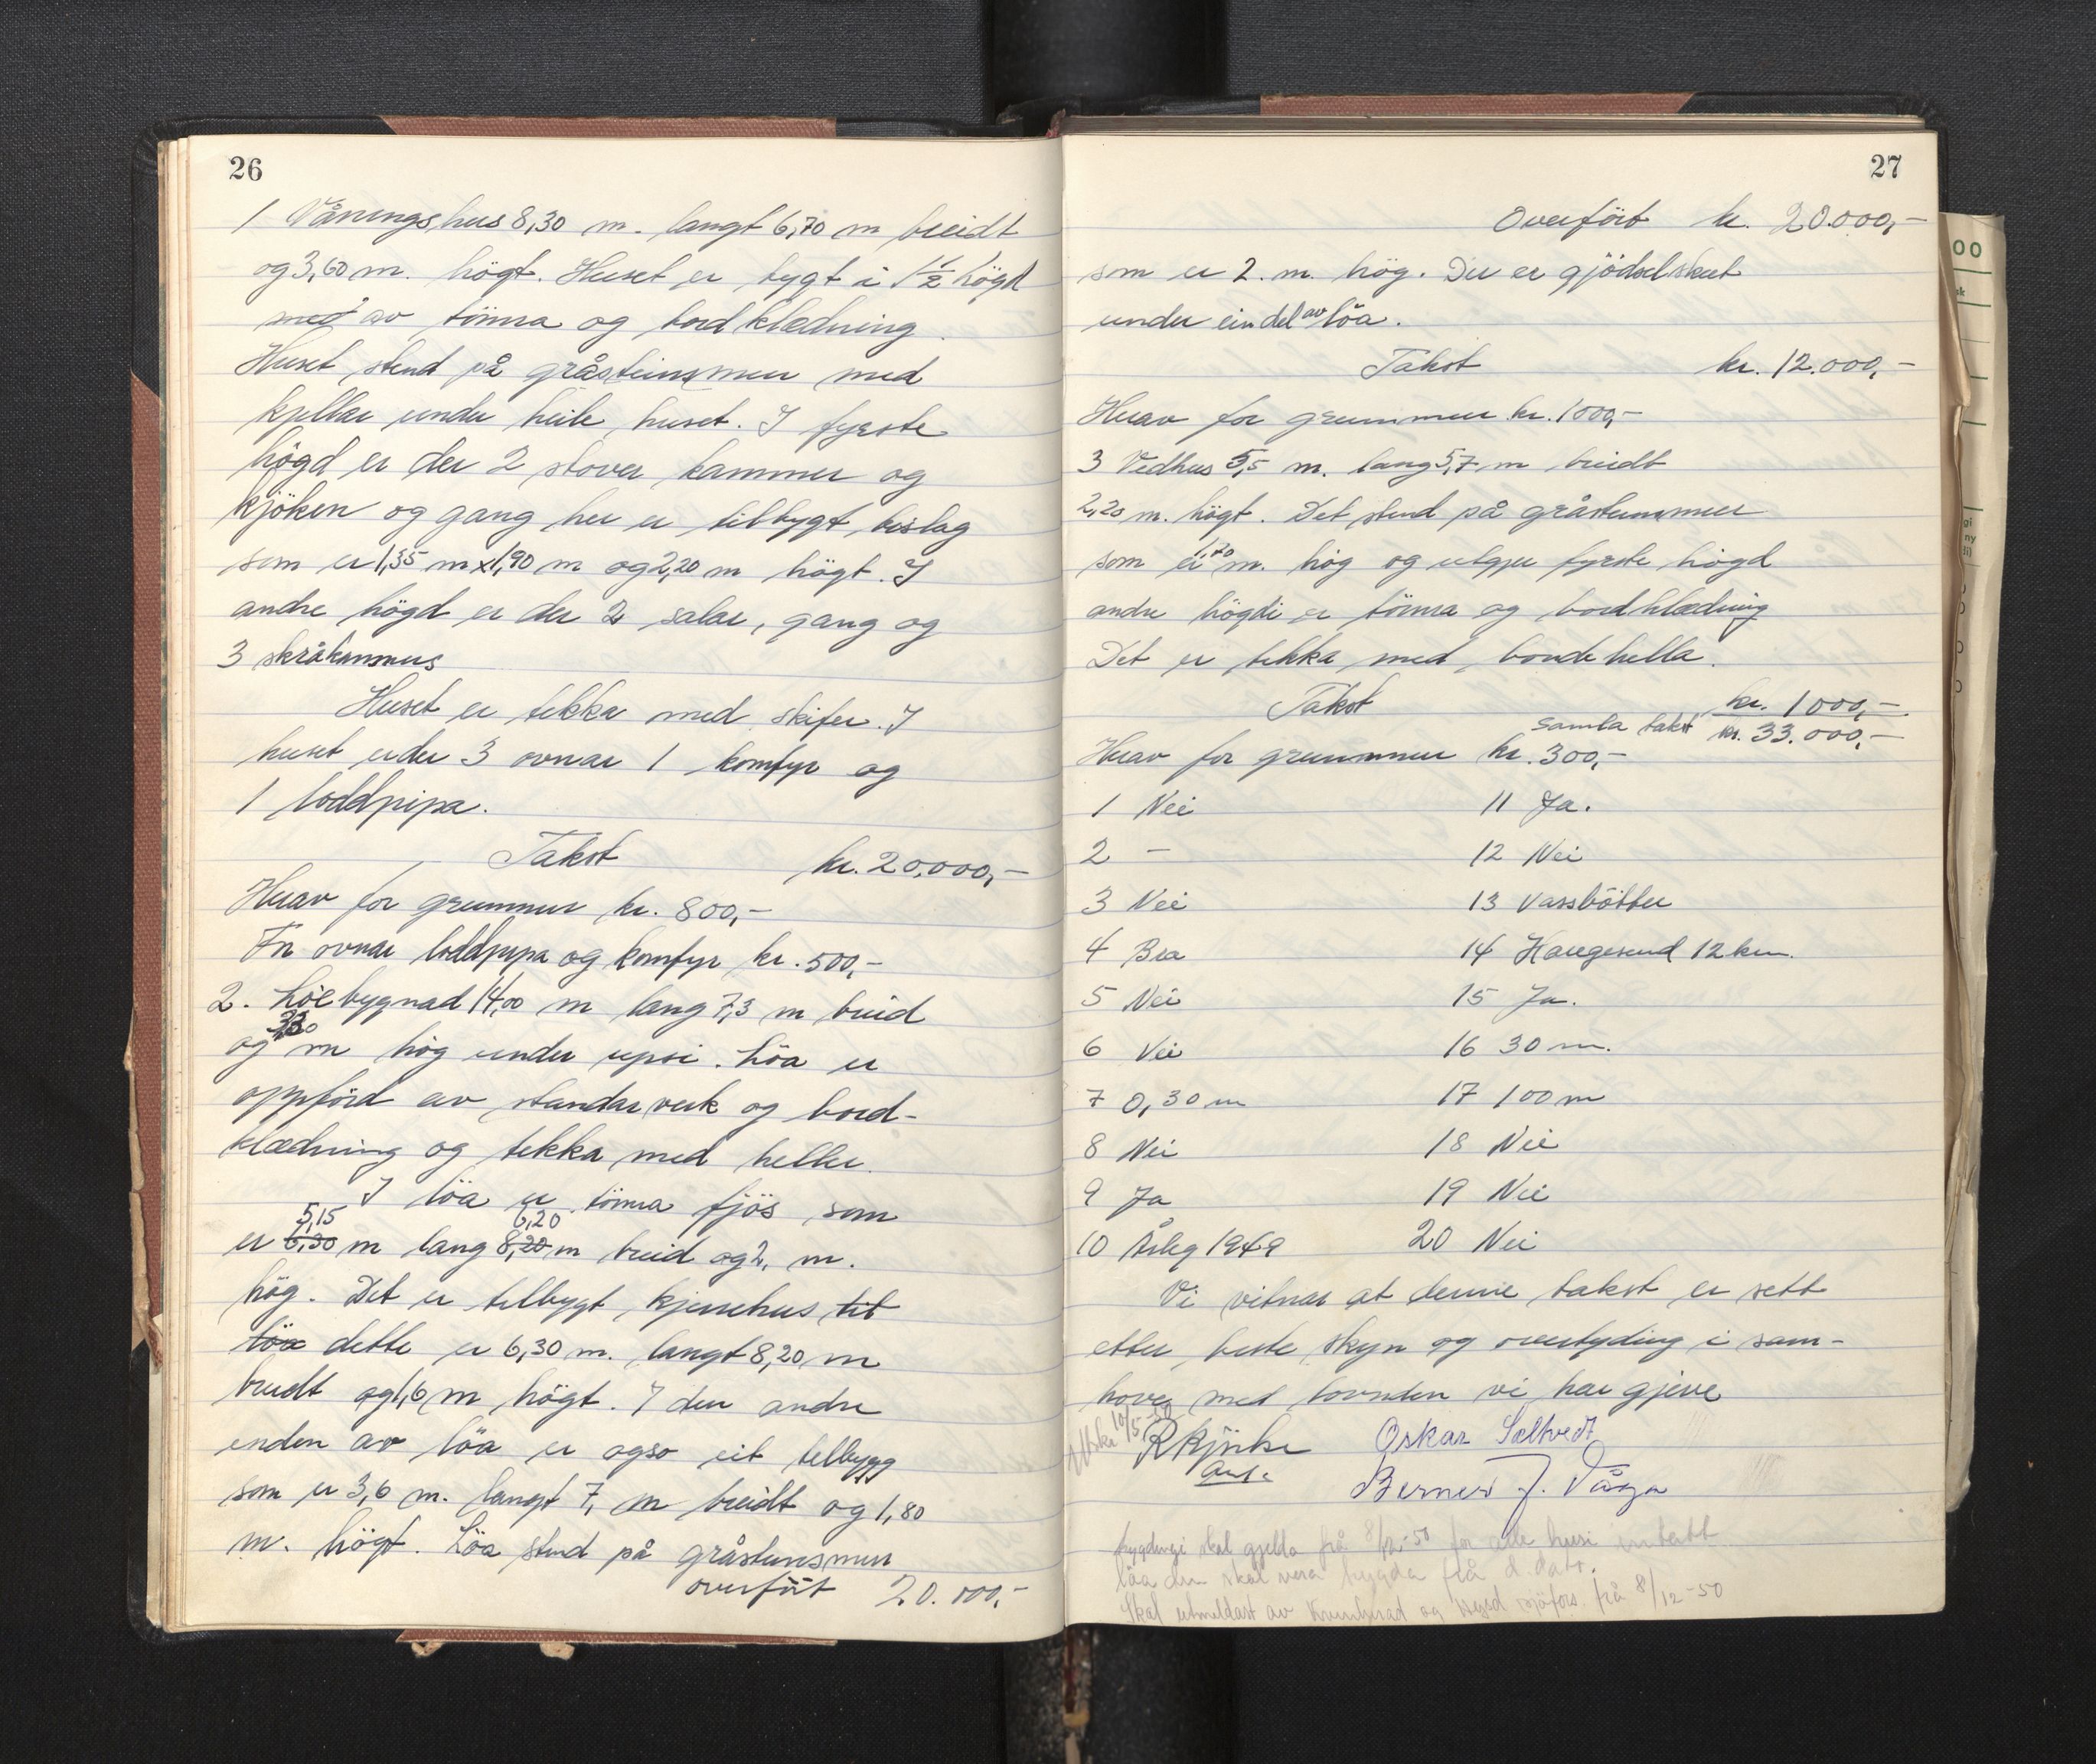 26
1 Våningshus 8,30 m. langt 6,70 m breidt
og 3,60 m. högt. Huset er bygt i 1 1/2 högd
med av tömra og bordklædning.
Huset stend på gråsteinsmur med
kjellar under heile huset. I fyrste
högd er der 2 stover kammer og
kjöken og gang her er tilbygt bislag
som er 1,35 m x 1,90 m og 2,20 m högt. I
andre högd er der 2 salar, gang og
3 skråkammers
Huset er tekka med skifer. I
huset er der 3 ovnar 1 komfyr og
1 loddpipa.
Takst kr. 20.000,-
Herav for grunnmur kr. 800,-
For ovnar loddpipa og komfyr kr. 500,-
2. Löebygnad 14,00 m lang 7,3 m breid
og m hög under upsi. Löa er
oppförd av standarverk og bord-
klædning og tekka med heller.
I löa er tömra fjös som
5,15 6,20
er 6,30 m lang 8,20 m breid og 2, m.
hög. Det er tilbygt kjenehus til
löa dette er 6,30 m. langt 8,20 m
breidt og 1,6 m högt. I den andre
enden av löa er ogso eit tilbygg
som er 3,6 m. langt 7, m breidt og 1,80
m. högt. Löa stend på gråsteinsmur
overfört 20.000,-
27
Overfört kr. 20.000,-
som er 2. m. hög. Der er gjödselskut
under ein del av löa.
Takst kr. 12.000,-
Herav for grunnmur kr. 1000,-
3 Vedhus 5,5 m. lang 5,7 m breidt
2,20 m. högt. Det stend på gråsteinsmur
som er 1,70 m. hög og utgjer fyrste högd
andre högdi er tömra og bordklædning
Det er tekka med bondehella.
Takst kr. 1000,-
Samla takst kr. 33.000,-
Herav for grunnmur kr. 300,-
1 Nei 11 Ja.
2 - 12 Nei
3 Nei 13 Vassbötter
4 Bra 14 Haugesund 12 km.
5 Nei 15 Ja.
6 Nei 16 30 m.
7 0,30 m 17 100 m
8 Nei 18 Nei
9 Ja 19 Nei
10 Årleg 1949 20 Nei
Vi vitnar at denne takst er sett
etter beste skyn og overtyding i sam-
hove med lovnden vi har gjeve
10/5-50
Oskar Saltvedt
Berner J. Våga
skal gjelda frå 8/12-50 for alle husi
löa den skal vera frå d. dato.
Skal utmeldast av og frå 8/12-50